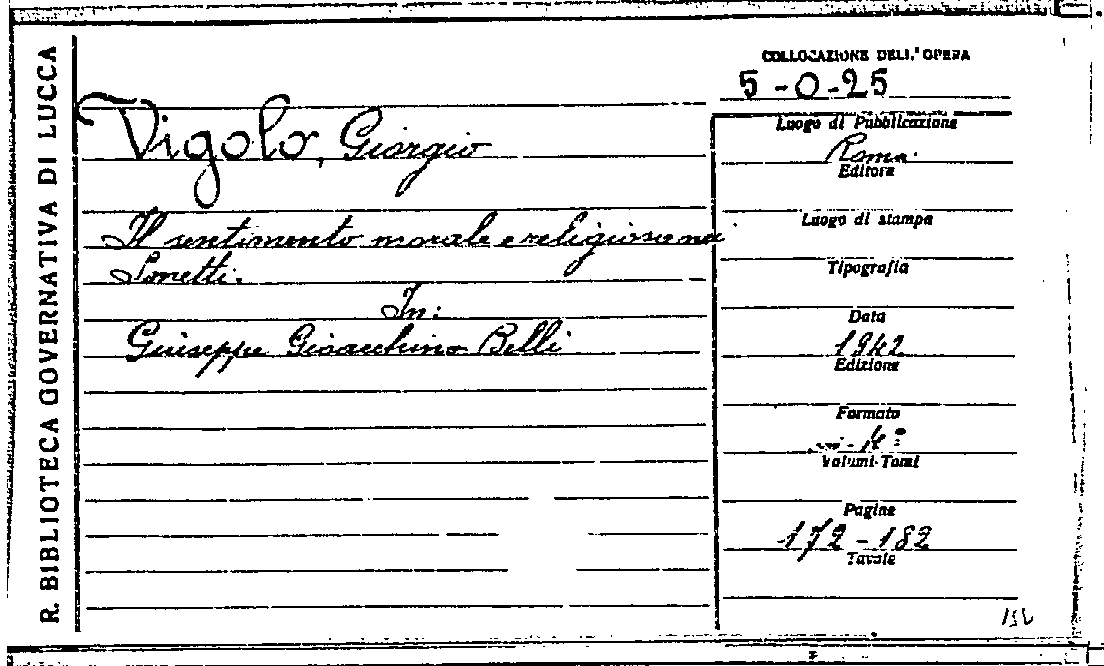 R. BIBLIOTECA GOVERNATIVA DI LUCCA
Vigolo, Giorgio
Il sentimento morale e religioso nei
Sonetti.
In:
Giuseppe Gioacchino Belli
COLLOCAZIONE DELL'OPERA
5-0-25
Luogo di Pubblicazione
Roma.
Editore
Luogo di stampa
Tipografia
Data
1942
Edizione
Formato
in-4°
Volumi-Tomi
Pagine
172-182
Tavole